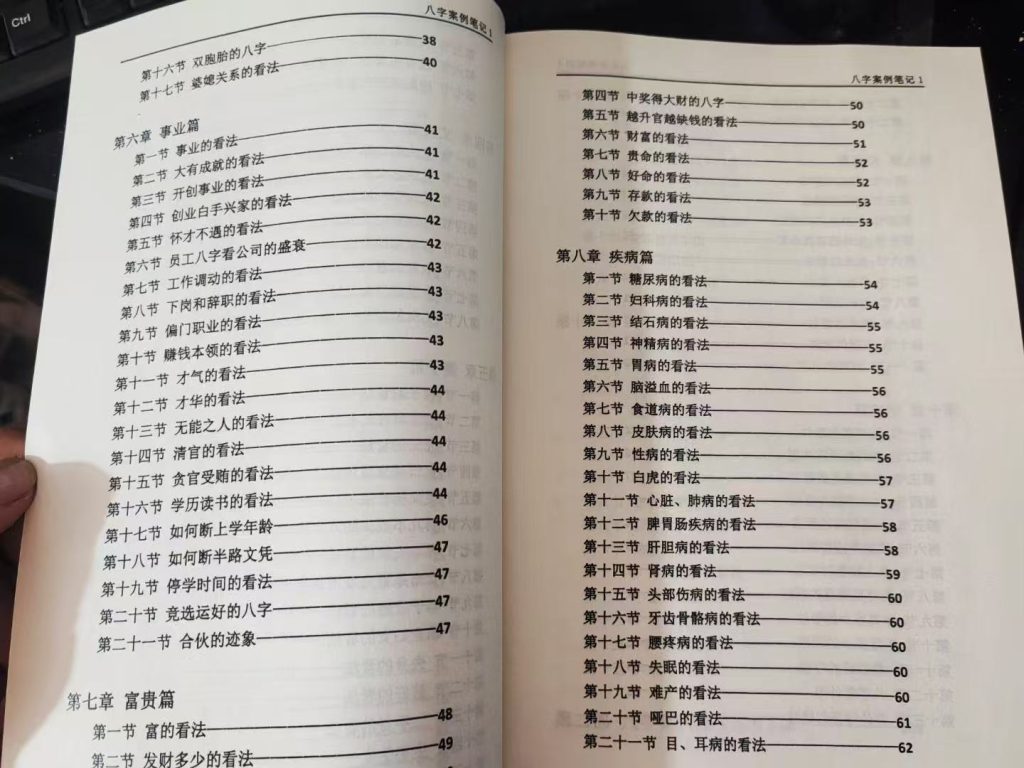 Ctrl
八字案例笔记 1
第十六节 双胞胎的八字 38
第十七节 婆媳关系的看法 40
第六章 事业篇
第一节 事业的看法 41
第二节 大有成就的看法 41
第三节 开创事业的看法 41
第四节 创业白手兴家的看法 42
第五节 怀才不遇的看法 42
第六节 员工八字看公司的盛衰 42
第七节 工作调动的看法 43
第八节 下岗和辞职的看法 43
第九节 偏门职业的看法 43
第十节 赚钱本领的看法 43
第十一节 才气的看法 43
第十二节 才华的看法 44
第十三节 无能之人的看法 44
第十四节 清官的看法 44
第十五节 贪官受贿的看法 44
第十六节 学历读书的看法 44
第十七节 如何断上学年龄 46
第十八节 如何断半路文凭 47
第十九节 停学时间的看法 47
第二十节 竞选运好的八字 47
第二十一节 合伙的迹象 47
第七章 富贵篇
第一节 富的看法 48
第二节 发财多少的看法 49
八字案例笔记 1
第四节 中奖得大财的八字 50
第五节 越升官越缺钱的看法 50
第六节 财富的看法 51
第七节 贵命的看法 52
第八节 好命的看法 52
第九节 存款的看法 53
第十节 欠款的看法 53
第八章 疾病篇
第一节 糖尿病的看法 54
第二节 妇科病的看法 54
第三节 结石病的看法 55
第四节 神精病的看法 55
第五节 胃病的看法 55
第六节 脑溢血的看法 56
第七节 食道病的看法 56
第八节 皮肤病的看法 56
第九节 性病的看法 56
第十节 白虎的看法 57
第十一节 心脏、肺病的看法 57
第十二节 脾胃肠疾病的看法 58
第十三节 肝胆病的看法 58
第十四节 肾病的看法 59
第十五节 头部伤病的看法 60
第十六节 牙齿骨骼病的看法 60
第十七节 腰疼病的看法 60
第十八节 失眠的看法 60
第十九节 难产的看法 60
第二十节 哑巴的看法 61
第二十一节 目、耳病的看法 62